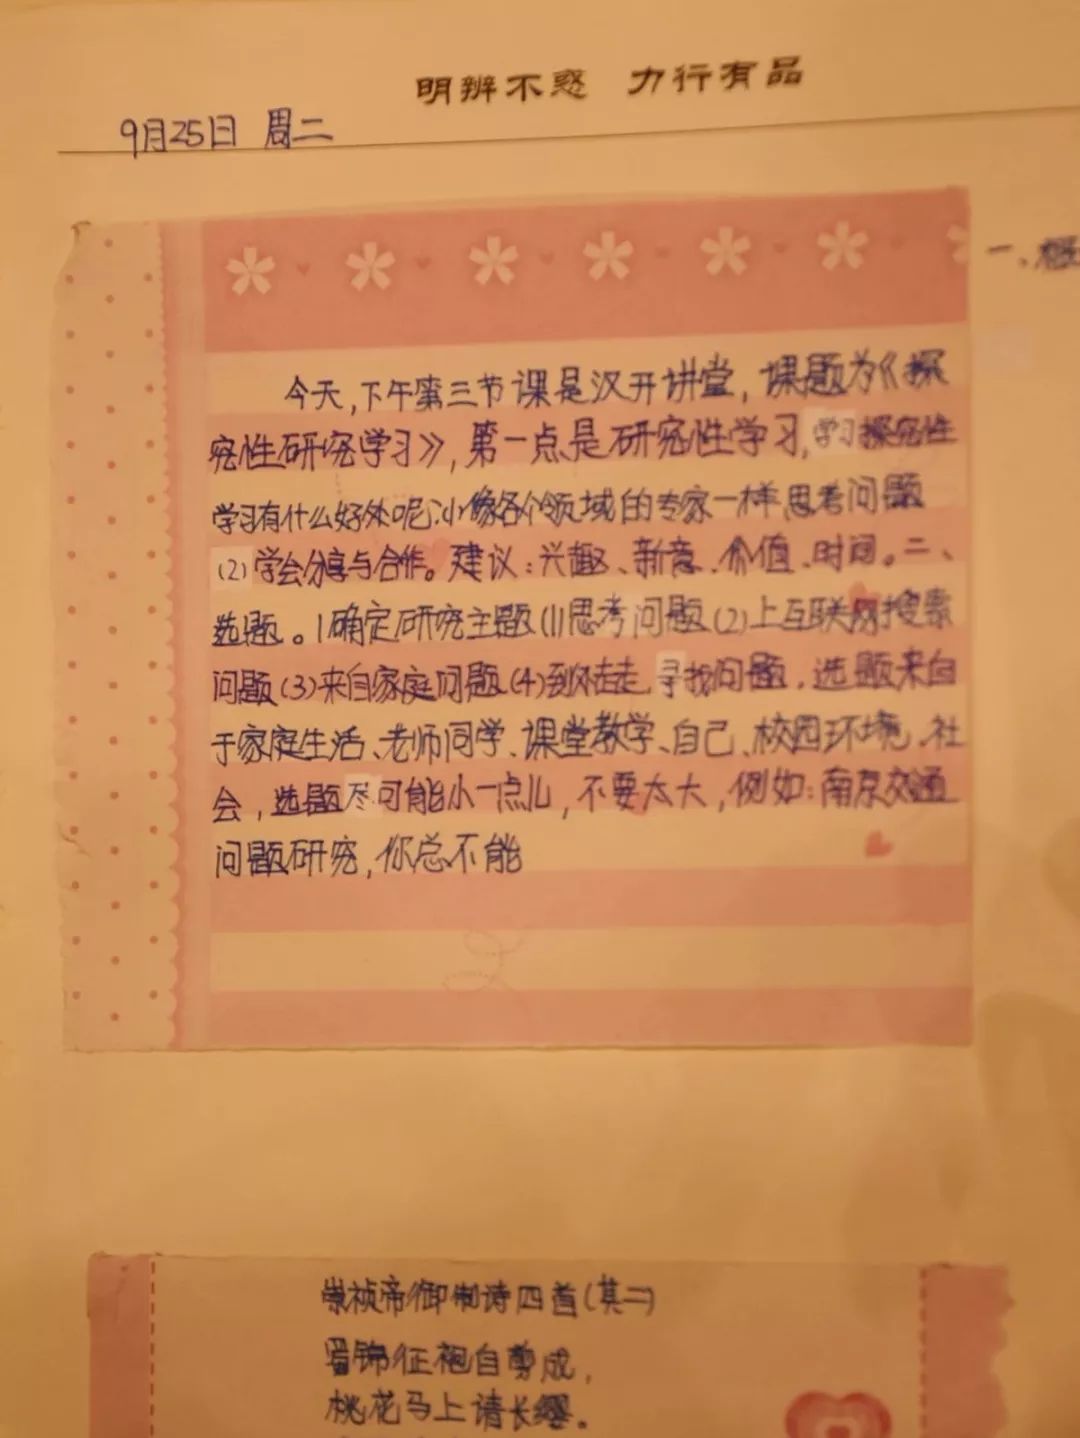 明辨不惑 力行有品
9月25日 周二
今天,下午第三节课是汉开讲堂,课题为《探
究性研究学习》,第一点是研究性学习,学习探究性
学习有什么好处呢:(1)像各个领域的专家一样思考问题
(2)学会分享与合作。建议:兴趣、新意、价值、时间。二、
选题。1确定研究主题(1)思考问题(2)上互联网搜索
问题(3)来自家庭问题(4)到处走走,寻找问题,选题来自
于家庭生活、老师同学、课堂教学、自己、校园环境、社
会,选题尽可能小一点儿,不要太大,例如:南京交通
问题研究,你总不能
一、概
崇祯帝御制诗四首(其二)
蜀锦征袍自剪成,
桃花马上请长缨。